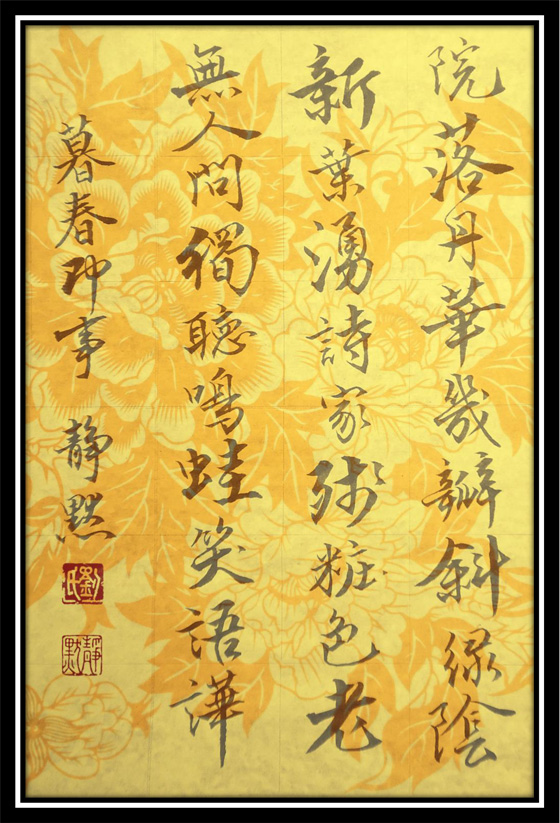 院落丹華幾瓣斜綠陰
新葉湧詩家殘粧色老
無人問獨聽鳴蛙笑語譁
暮春即事 靜默
劉氏
靜默